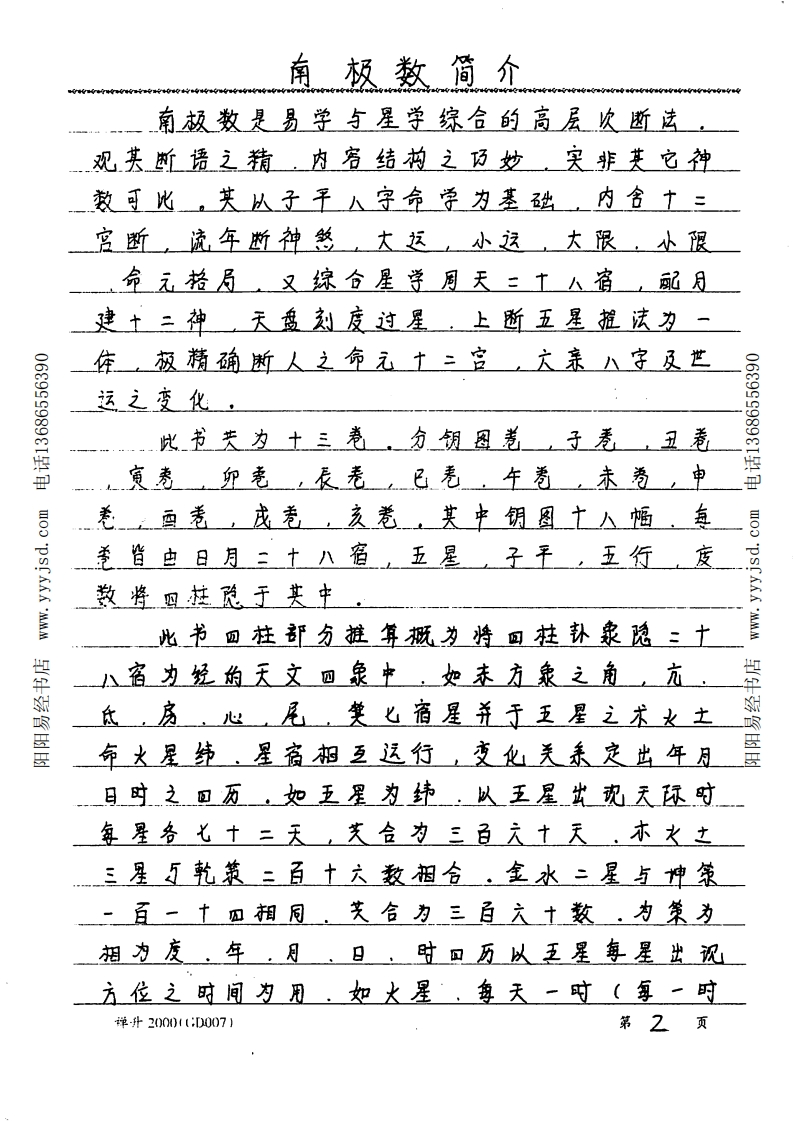 南极数简介
南极数是易学与星学综合的高层次断法.
观其断语之精.内容结构之巧妙.实非其它神
数可比。其以子平八字命学为基础,内含十二
宫断,流年断神煞,大运,小运,大限.小限
.命元格局.又综合星学周天二十八宿,配月
建十二神,天盘刻度过星.上断五星推法为一
体,极精确断人之命元十二宫,六亲八字及世
运之变化.
此书共为十三卷.分钥图卷,子卷,丑卷
,寅卷,卯卷,辰卷,巳卷.午卷,未卷,申
卷,酉卷,戌卷,亥卷.其中钥图十八幅.每
卷皆由日月二十八宿,五星,子平,五行,度
数将四柱隐于其中.
此书四柱部分推算概为将四柱卦象隐二十
八宿为经的天文四象中.如东方象之角,亢.
氐.房.心.尾.箕七宿星并于五星之木火土
命火星纬.星宿相互运行,变化关系定出年月
日时之四历.如五星为纬.以五星出现天际时
每星各七十二天,共合为三百六十天.木火土
三星与乾策二百十六数相合.金水二星与坤策
一百一十四相同.共合为三百六十数.为策为
相为度.年.月.日.时四历以五星每星出现
方位之时间为用.如火星.每天一时(每一时
禅升2000(GD007)
第2页
阳阳易经书店 www.yyyjsd.com 电话13686556390
阳阳易经书店 www.yyyjsd.com 电话13686556390